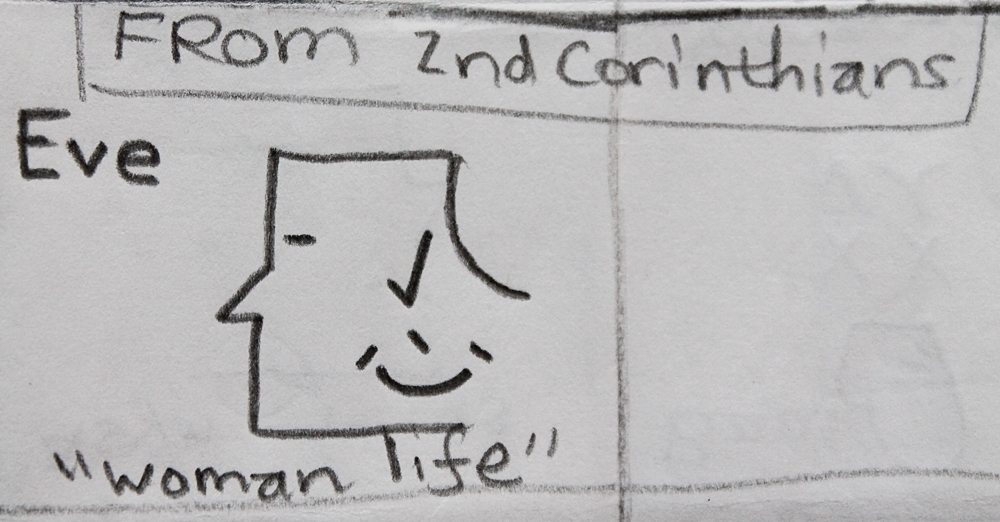 FRom 2nd Corinthians
Eve
"woman life"